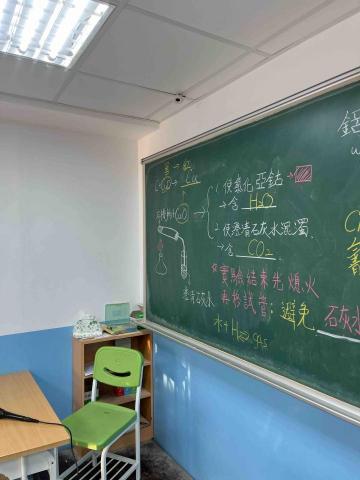 黑 → 紅
C + CuO → Cu
有機物 + CuO →
1 使氯化亞鈷 →
→ 含 H₂O
2 使澄清石灰水混濁
→ 含 CO₂
澄清石灰水
※ 實驗結束先熄火
再移試管：避免 石灰水
鋁